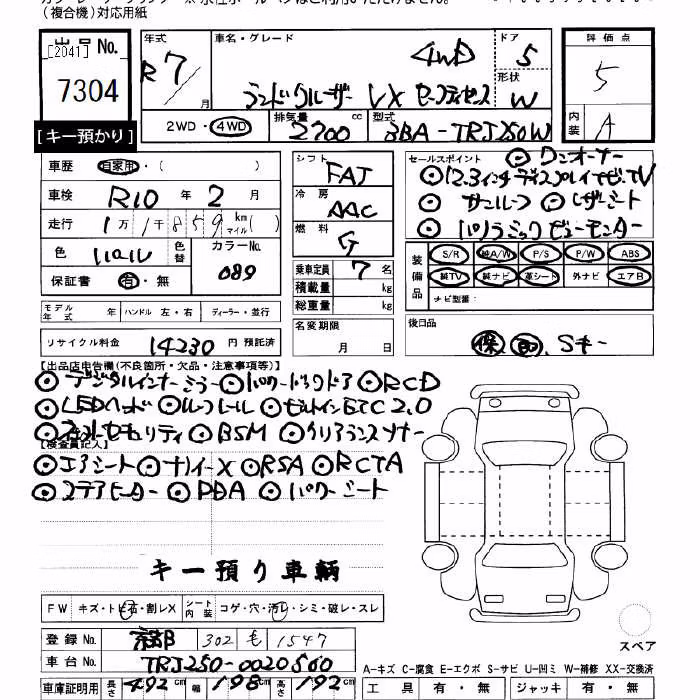 (複合機)対応用紙
出品No.
[2041]
7304
【キー預かり】
年式
R7/
月
車名・グレード
4WD
ランドクルーザー VX セーフティセンス
ドア
5
形状
W
評価点
5
内装
A
2WD・4WD
排気量
2700
cc
型式
3BA-TRJ250W
車歴
自家用・( )
車検
R10 年 2 月
走行
1万 1千 859 km マイル( )
色
パール
色替
カラーNo.
089
保証書
有・無
シフト
FAT
冷房
AAC
燃料
G
乗車定員
7 名
積載量 kg
総重量 kg
セールスポイント
ワンオーナー
12.3インチディスプレイナビ・TV
サンルーフ レザーシート
パノラミックビューモニター
装備品
S/R 純A/W P/S P/W ABS
純TV 純ナビ 革シート 外ナビ エアB
ナビ型番:
モデル年式 年 ハンドル 左・右 ディーラー・並行
リサイクル料金 14230 円 預託済
名変期限
月 日
後日品
保 取 Sキー
【出品店申告欄(不良箇所・欠品・注意事項等)】
デジタルインナーミラー パワーバックドア RCD
LEDヘッド ルーフレール ビルトインETC2.0
オートセキュリティ BSM クリアランスソナー
【検査員記入】
エアシート ナノイーX RSA RCTA
ステアヒーター PDA パワーシート
キー預り車輌
FW キズ・トビ石・割レX シート内装 コゲ・穴・汚レ・シミ・破レ・スレ
登録No. 京都 302 も 1547
車台No. TRJ250-0020560
車庫証明用 長さ 492 cm 幅 198 cm 高さ 192 cm
スペア
A-キズ C-腐食 E-エクボ S-サビ U-凹ミ W-補修 XX-交換済
工具 有・無 ジャッキ 有・無